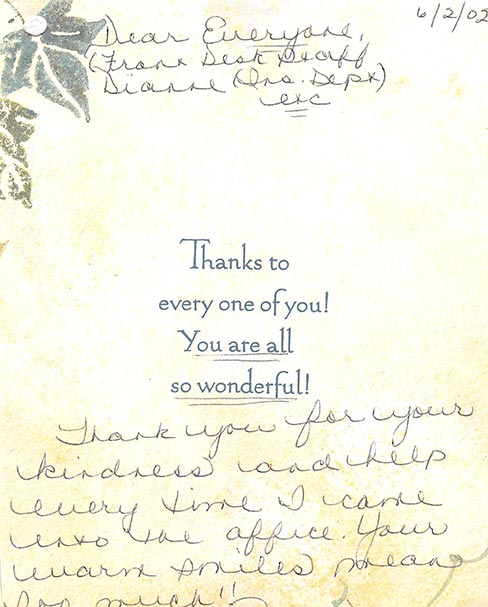 6/2/02
Dear Everyone,
(Front Desk Staff
Dianne (Ins. Dept)
etc
Thanks to
every one of you!
You are all
so wonderful!
Thank you for your
kindness and help
every time I came
into the office. Your
warm smiles mean
so much!!